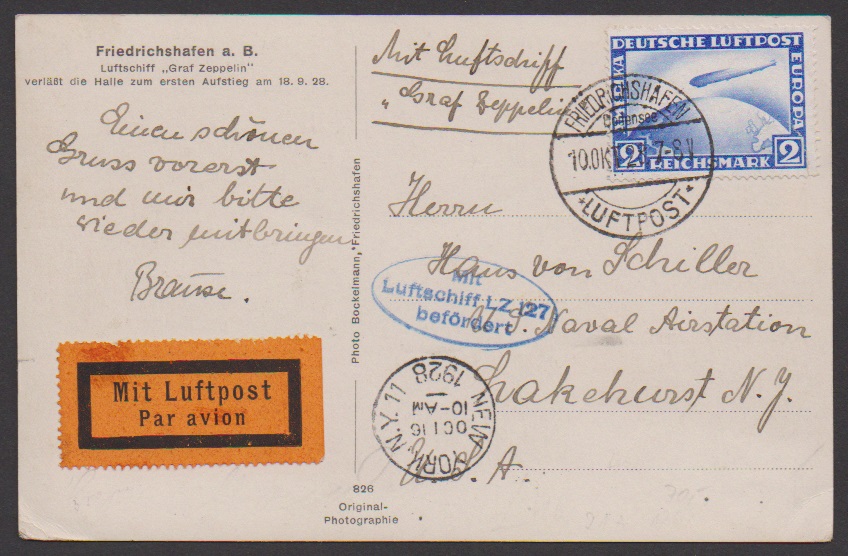 Friedrichshafen a. B.
Luftschiff „Graf Zeppelin"
verläßt die Halle zum ersten Aufstieg am 18. 9. 28.
Einen schönen
Gruss vorerst
und mir bitte
wieder mitbringen
Brause.
Mit Luftpost
Par avion
Photo Bockelmann, Friedrichshafen
826
Original-
Photographie
Mit Luftschiff
„Graf Zeppelin
DEUTSCHE LUFTPOST
EUROPA
2 REICHSMARK 2
FRIEDRICHSHAFEN
Bodensee
10.OKT.28.7-8V
*LUFTPOST*
Herrn
Hans von Schiller
U.S. Naval Airstation
Lakehurst N.J.
U.S.A.
Mit
Luftschiff LZ 127
befördert
NEW YORK N.Y. 11
OCT 16
10-AM
1928